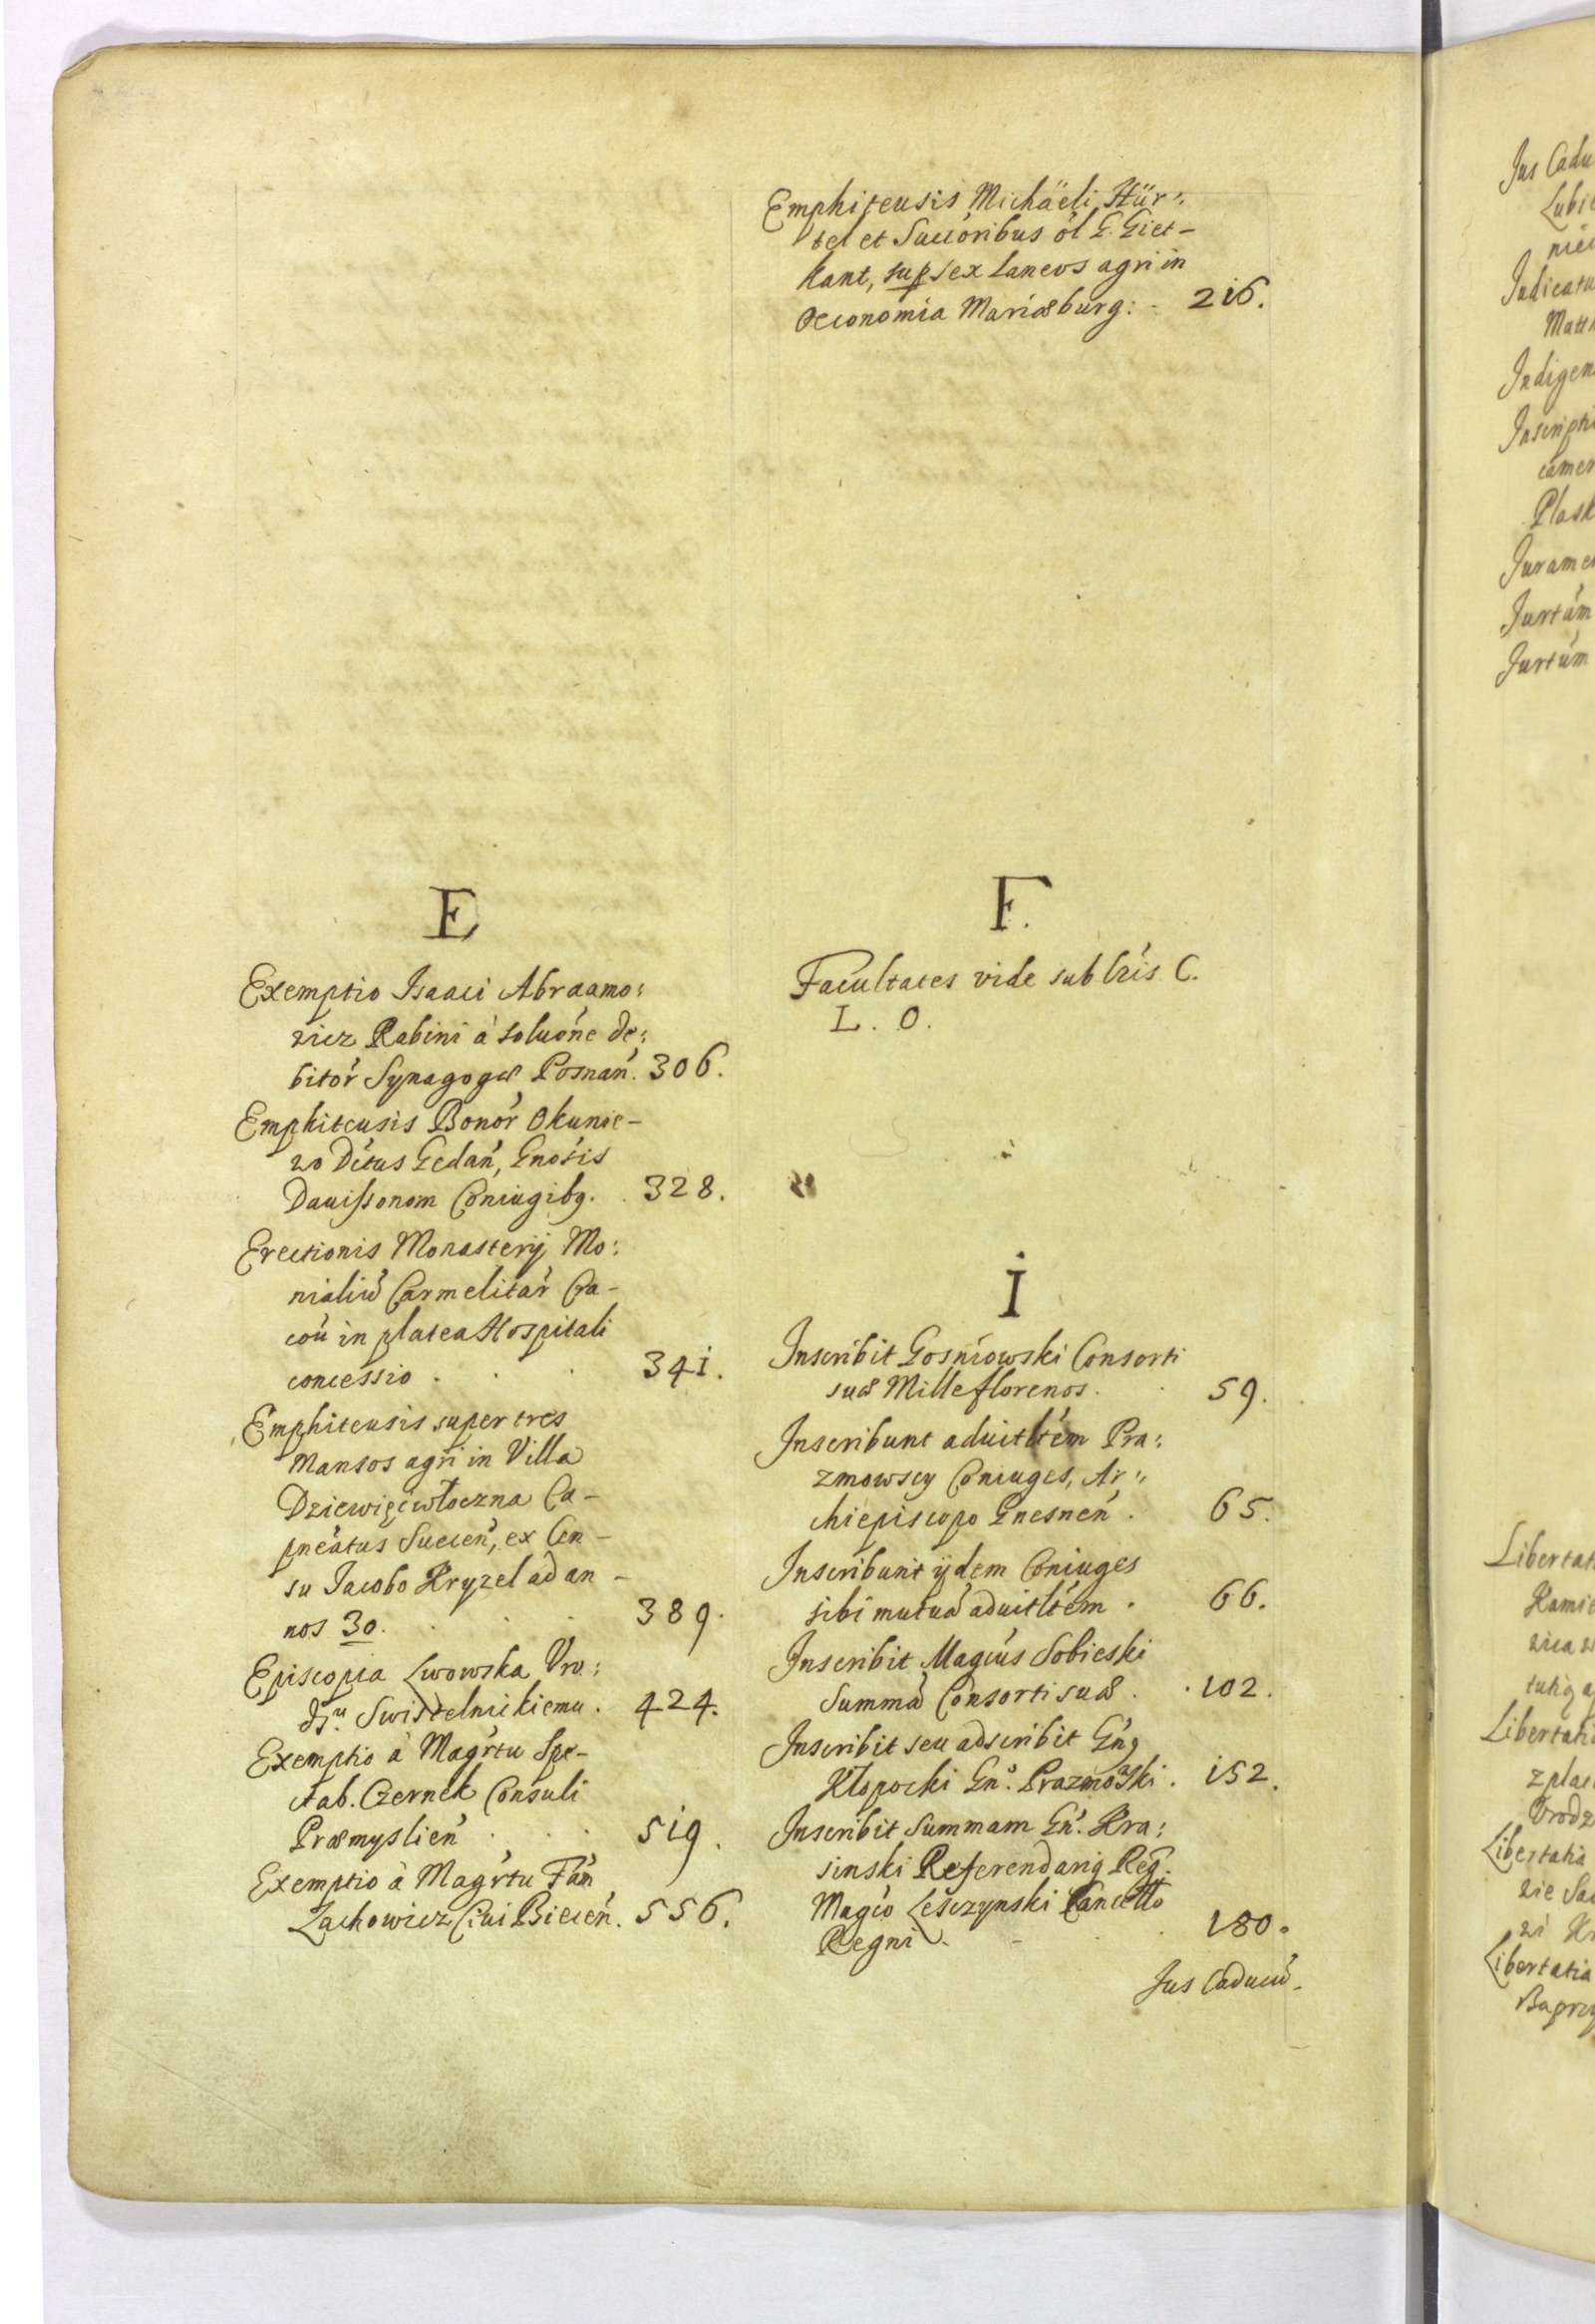 E
Exemptio Isaaci Abraamo:
wicz Rabini à soluóne de:
bitór Synagogæ Posnań. 306.
Emphiteusis Bonór Okunie-
wo Détus Gedań, Gnósis
Dauissonom Coniugibg. 328.
Erectionis Monasterij Mo:
nialiũ Carmelitár Cra-
coũ in platea Hospitali
concessio . . . 341.
Emphiteusis super tres
Mansos agri in Villa
Dziewięćwłoczna Ca-
pneátus Sueceń, ex Cen-
su Jacobo Kryzel ad an-
nos 30. . . 389.
Episcopia Lwowska Vro:
dzu. Swistelnickiemu. 424.
Exemptio à Magŕtu Spe-
ctab. Czernek Consuli
Præmyslień . . . 519.
Exemptio à Magŕtu Fán
Zachowicz Ciui Bieceń. 556.
Emphiteusis Michäeli Hür:
tel et Succóribus ól G. Giet-
kant, sup sex Laneos agri in
Oeconomia Mariæburg: - 216.
F.
Facultates vide sub lr̃is C.
L. O.
I
Inscribit Gosniowski Consorti
suæ Mille florenos. . 59.
Inscribunt aduitltém Pra:
zmowscy Coniuges, Ar:
chiepiscopo Gnesneń. 65.
Inscribunt ijdem Coniuges
sibi mutuã aduitltém . 66.
Inscribit Magcús Sobieski
Summã Consorti suæ . . 102.
Inscribit seu adscribit Gńg
Kłopocki Gń. Prazmowski . 152.
Inscribit Summam Gń. Kra:
sinski Referendarig Reg.
Magcó Leszczynski Cancello
Regni . - . 180.
Jus Caducũ-
Jus Cadu
Judicatu
Matt
Indigen
Inscripti
camer
Plask
Jurame
Jurtám
Jurtúm
Libertat
Kamie
Libertati
z plac
Vrodz
Libertatia
Libertatia